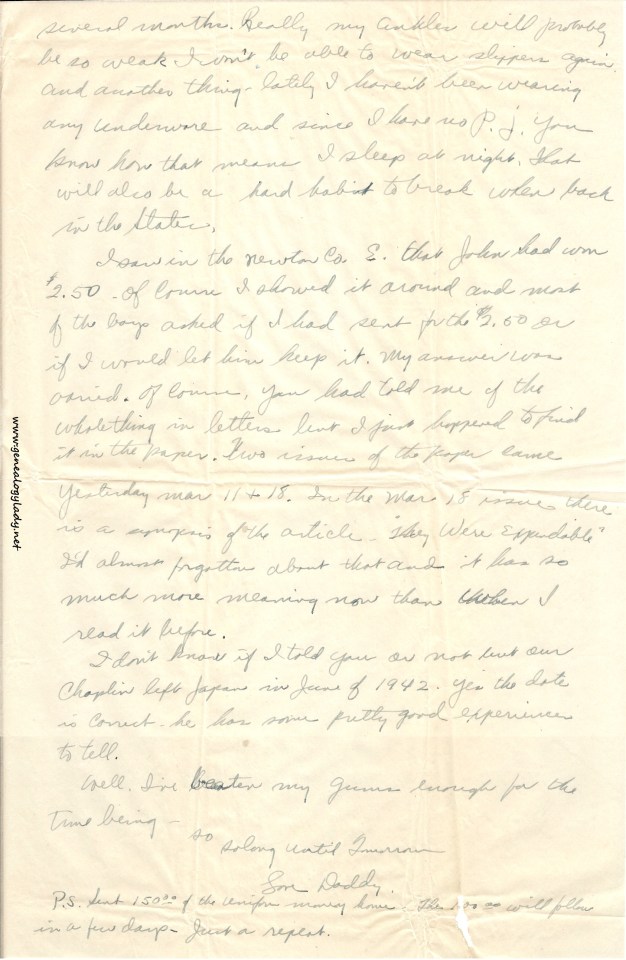 several months. Really my ankles will probably
be so weak I won't be able to wear slippers again.
And another thing - lately I haven't been wearing
any underware and since I have no P.J. you
know how that means I sleep at night. That
will also be a hard habit to break when back
in the States.
I saw in the Newton Co. E. that John had won
$2.50. Of course I showed it around and most
of the boys asked if I had sent for the $2.50 or
if I would let him keep it. My answer was
varied. Of course, you had told me of the
whole thing in letters but I just happened to find
it in the paper. Two issues of the paper came
yesterday Mar 11 + 18. In the Mar 18 issue there
is a synopsis of the article - "They Were Expendable"
I'd almost forgotten about that and it has so
much more meaning now than when I
read it before.
I don't know if I told you or not but our
Chaplin left Japan in June of 1942. Yes the date
is correct - he has some pretty good experiences
to tell.
Well. I've beaten my gums enough for the
time being -
so so long until Tomorrow
Love Daddy.
P.S. Sent 150.00 of the uniform money home. The 100.00 will follow
in a few days - Just a repeat.
www.genealogylady.net